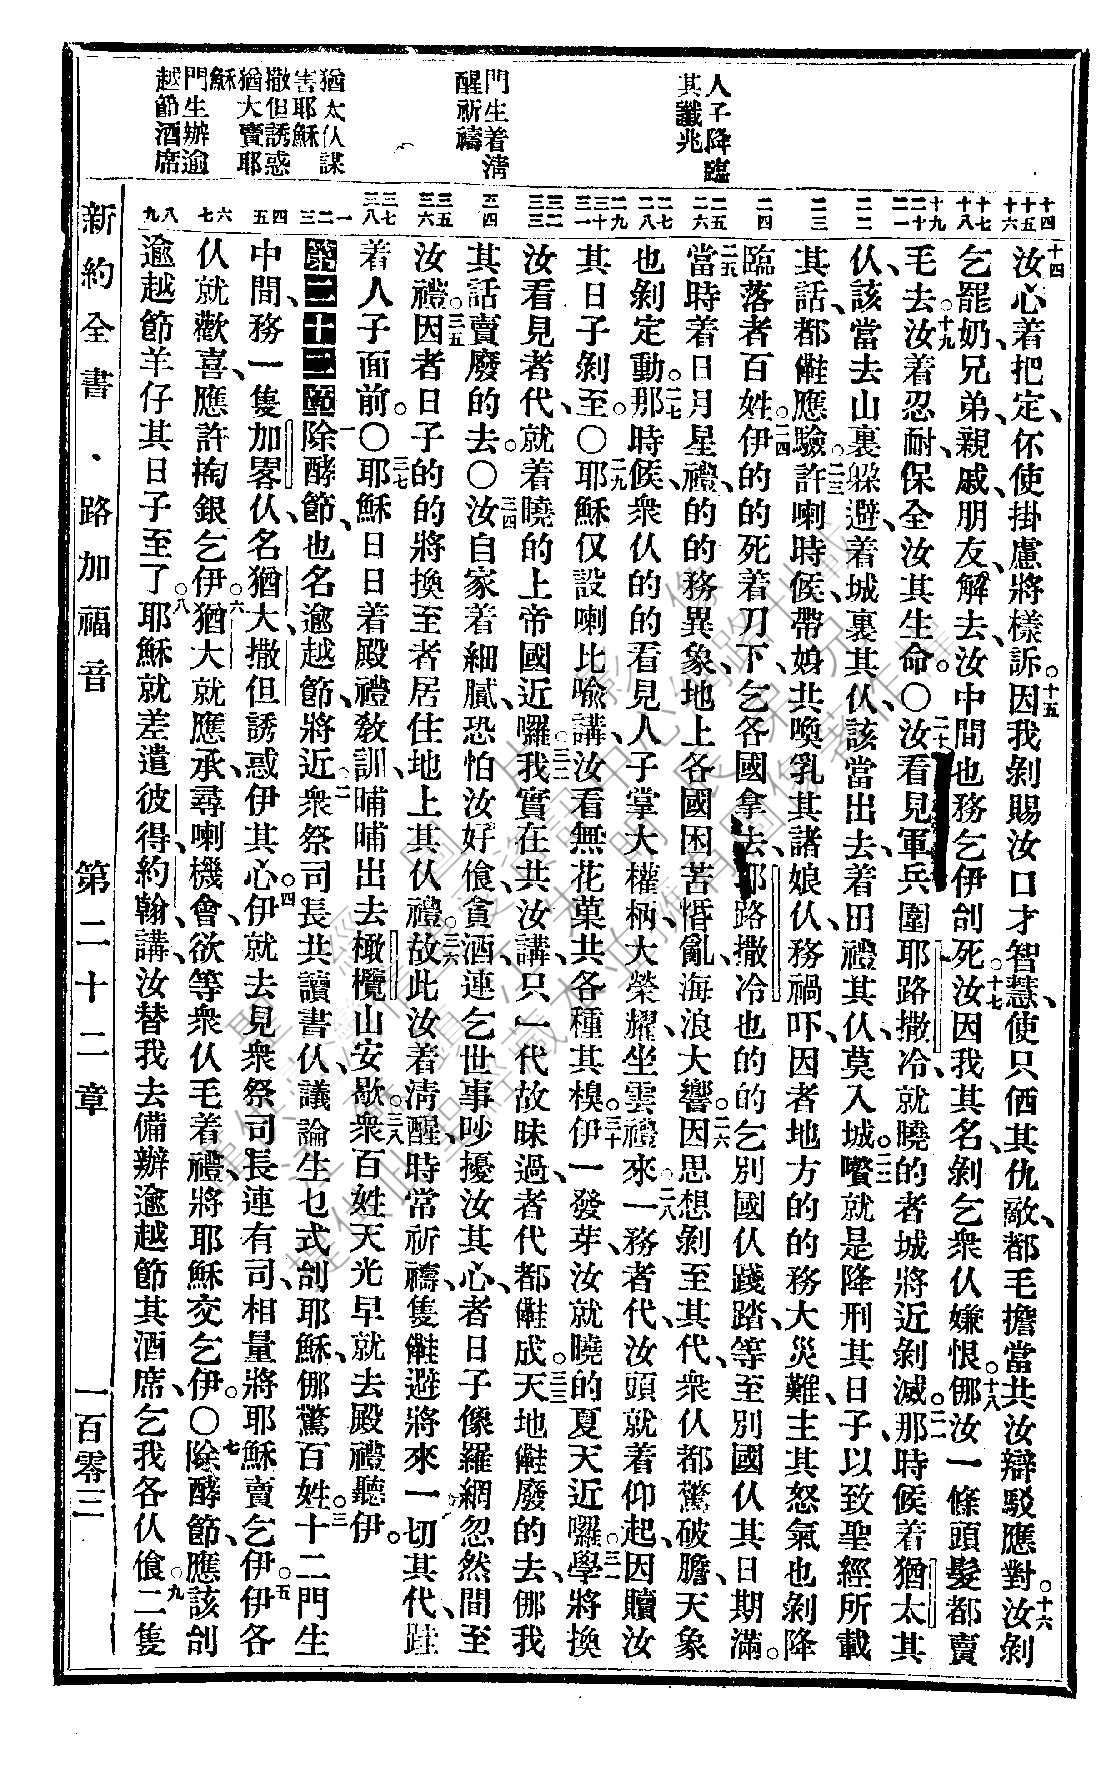 人子降臨
其讖兆
門生着清
醒祈禱
猶太仸謀
害耶穌
撒但誘惑
猶大賣耶
穌
門生辦逾
越節酒席
十四
十五
十六
十七
十八
十九
二十
二一
二二
二三
二四
二五
二六
二七
二八
二九
三十
三一
三二
三三
三四
三五
三六
三七
三八
一
二
三
四
五
六
七
八
九
十四汝心着把定、伓使掛慮將樣訴。十五因我剝賜汝口才智慧、使只仮其仇敵、都毛擔當共汝辯駁應對。十六汝剝
乞罷奶、兄弟、親戚、朋友、解去、汝中間也務乞伊刣死。十七汝因我其名、剝乞衆仸嫌恨。十八𠆧汝一條頭髮都賣
毛去。十九汝着忍耐、保全汝其生命〇二十汝看見軍兵圍耶路撒冷、就曉的者城將近剝滅。二一那時候着猶太其
仸、該當去山裏躲避、着城裏其仸、該當出去、着田禮其仸、莫入城。二二嚽就是降刑其日子、以致聖經所載
其話、都㑚應驗。二三許喇時候、帶娠共喚乳其諸娘仸務禍吓、因者地方的的務大災難、主其怒氣也剝降
臨落者百姓。二四伊的的死着刀下、乞各國拿去、耶路撒冷也的的乞別國仸踐踏、等至別國仸其日期滿。
二五當時着日月星禮、的的務異象、地上各國困苦惛亂、海浪大響。二六因思想剝至其代、衆仸都驚破膽、天象
也剝定動。二七那時候、衆仸的的看見人子掌大權柄、大榮耀、坐雲禮來。二八一務者代、汝頭就着仰起、因贖汝
其日子剝至〇二九耶穌仅設喇比喻講、汝看無花菓共各種其樹。三十伊一發芽、汝就曉的夏天近囉。三一學將換
汝看見者代、就着曉的上帝國近囉。三二我實在共汝講、只一代故昧過、者代都㑚成。三三天地㑚廢的去、𠆧我
其話賣廢的去〇三四汝自家着細膩、恐怕汝好飡、貪酒、連乞世事吵擾汝其心、者日子像羅網忽然間至
汝禮。三五因者日子的的將換至者居住地上其仸禮。三六故此汝着清醒、時常祈禱、隻㑚避將來一切其代、跬
着人子面前〇三七耶穌日日着殿禮教訓、晡晡出去橄欖山安歇。三八衆百姓天光早就去殿禮聽伊。
第二十二章一除酵節、也名逾越節、將近。二衆祭司長共讀書仸、議論生乜式刣耶穌、𠆧驚百姓。三十二門生
中間、務一隻加畧仸、名猶大、撒但誘惑伊其心。四伊就去見衆祭司長連有司、相量將耶穌賣乞伊。五伊各
仸就歡喜、應許掏銀乞伊。六猶大就應承、尋喇機會、欲等衆仸毛着禮、將耶穌交乞伊。〇七除酵節、應該刣
逾越節羊仔其日子至了。八耶穌就差遣彼得、約翰、講、汝替我去備辦逾越節其酒席、乞我各仸飡。九二隻
新約全書・路加福音　第二十二章　一百零三